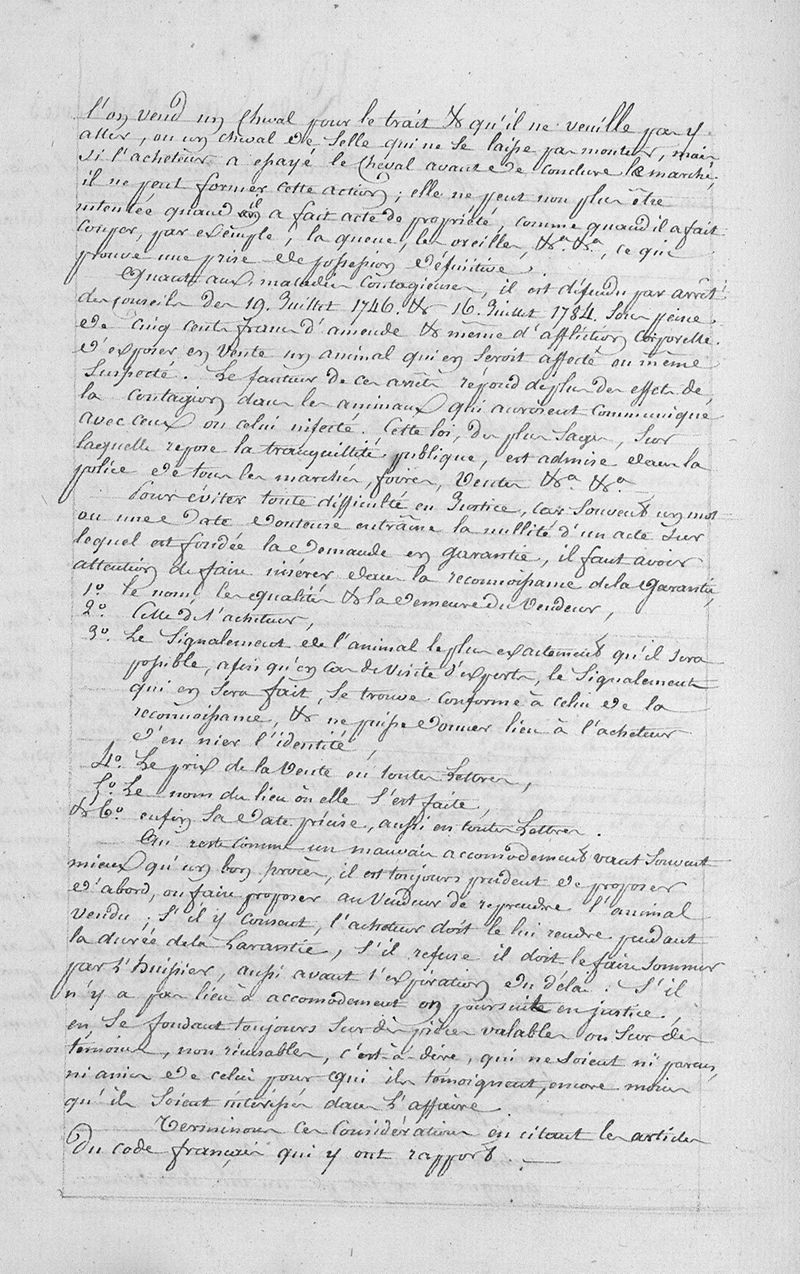 l'on vend un Cheval pour le trait & qu'il ne veuille pas y
aller, ou un cheval de Selle qui ne se laisse pas monter, mais
si l'acheteur a essayé le Cheval avant de conclure le marché,
il ne peut former cette action ; elle ne peut non plus être
intentée quand il a fait acte de propriété, comme quand il a fait
couper, par exemple, la queue, les oreilles, &a &a, ce qui
prouve une prise de possession définitive.
Quant aux maladies Contagieuses, il est défendu par arrêt
des conseils des 19. Juillet 1746. & 16. Juillet 1784. Sous peine
de Cinq cents francs d'amende & même d'affliction Corporelle
d'exposer en vente un animal qui en seroit affecté ou même
Suspecté. Le fauteur de ces arrêts répond de plus des effets de
la Contagion dans les animaux qui auroient communiqué
avec ceux ou celui infecté. Cette loi, des plus Sages, Sur
laquelle repose la tranquillité publique, est admise dans la
police de tous les marchés, foires, Ventes &a &a
Pour éviter toute difficulté en Justice, car Souvent un mot
ou une Date douteuse entraîne la nullité d'un acte Sur
lequel est fondée la demande en garantie, il faut avoir
attention de faire insérer dans la reconnoissance de la Garantie,
1º. le nom, les qualités & la demeure du Vendeur,
2º. Celle de l'acheteur,
3º. Le Signalement de l'animal le plus exactement qu'il sera
possible, afin qu'en cas de Visite d'experts, le Signalement
qui en sera fait, Se trouve conforme à celui de la
reconnoissance, & ne puisse donner lieu à l'acheteur
d'en nier l'identité,
4º. Le prix de la Vente en toutes Lettres,
5º. Le nom du lieu où elle S'est faite,
& 6º. enfin Sa Date précise, aussi en toutes Lettres.
Au reste comme un mauvais accomodement vaut Souvent
mieux qu'un bon procès, il est toujours prudent de proposer
d'abord, ou faire proposer au Vendeur de reprendre l'animal
vendu ; S'il y consent, l'acheteur doit le lui rendre pendant
la durée de la Garantie, S'il refuse il doit le faire Sommer
par l'Huissier, aussi avant l'expiration du délai. S'il
n'y a pas lieu à accomodement on poursuite en justice,
en Se fondant toujours Sur des pièces valables ou Sur des
témoins, non récusables, c'est-à-dire, qui ne Soient ni parens,
ni amis de celui pour qui ils témoignent, encore moins
qu'ils Soient intéressés dans l'affaire.
Terminons ces Considérations en citant les articles
Du code français qui y ont rapport.